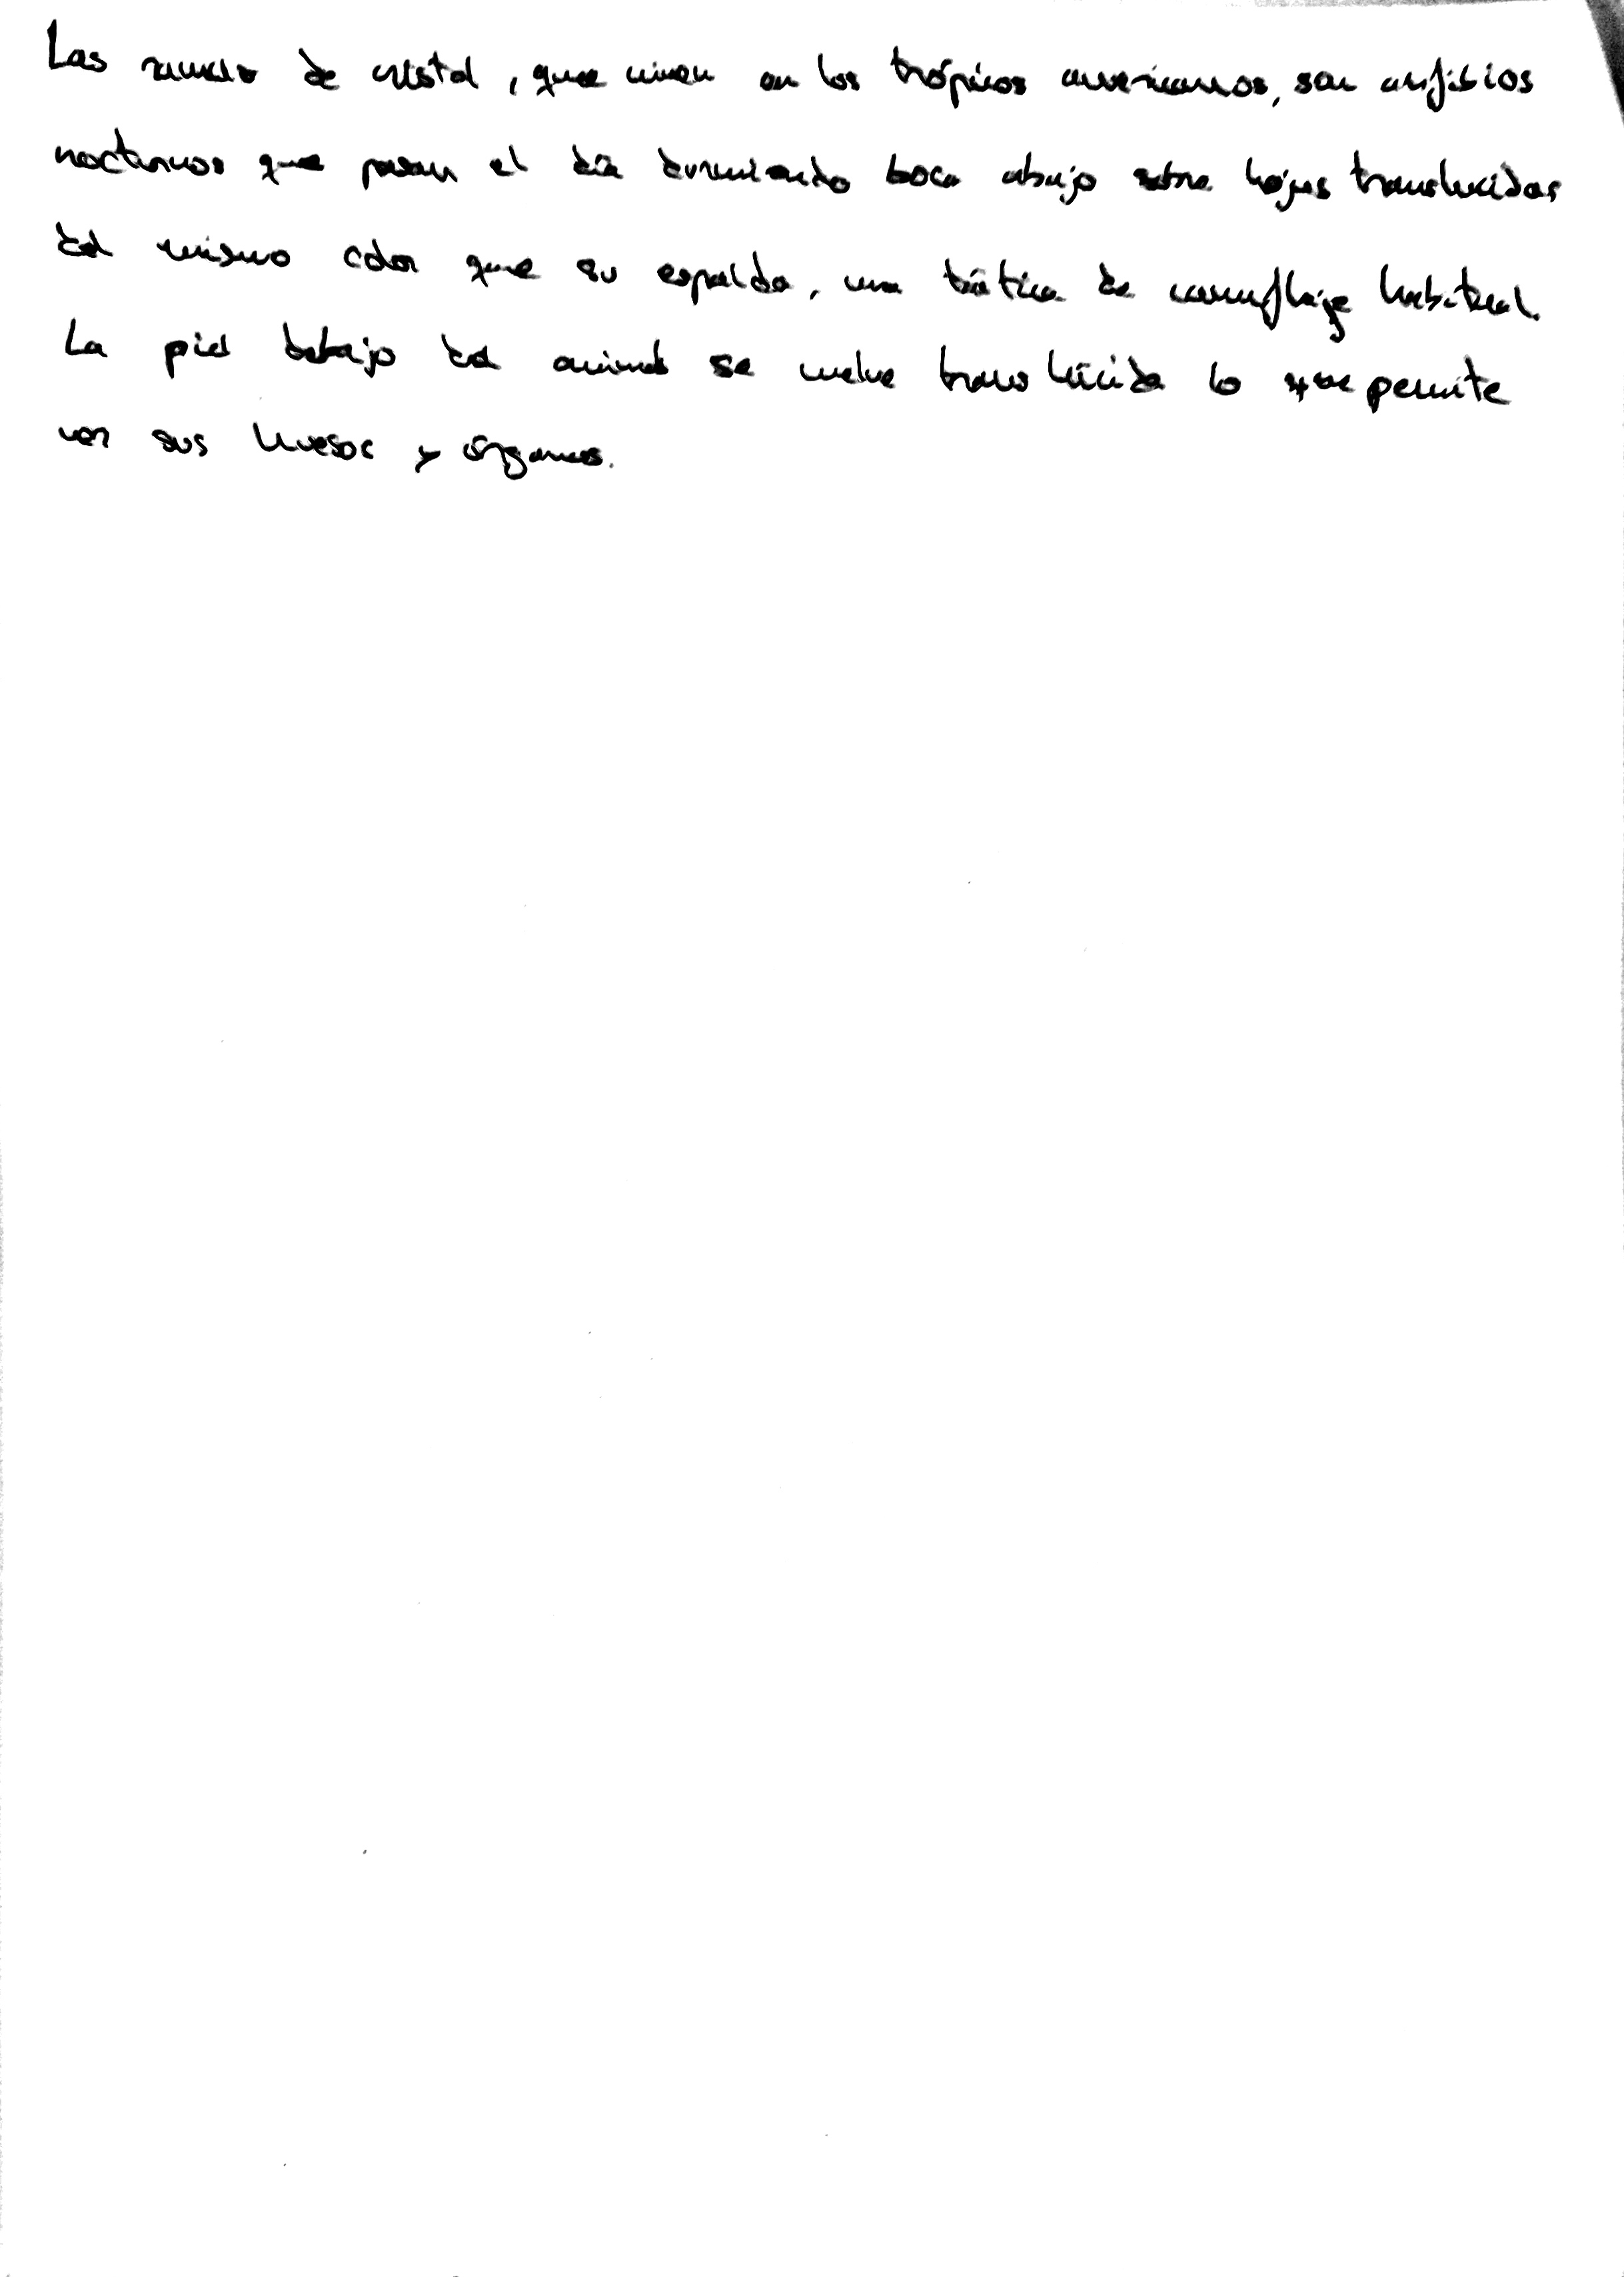 Las ranas de cristal, que viven en los trópicos americanos, son anfibios
nocturnos que pasan el día durmiendo boca abajo sobre hojas translucidas
del mismo color que su espalda, una táctica de camuflaje habitual.
La piel debajo del animal se vuelve translúcida lo que permite
ver sus huesos y órganos.